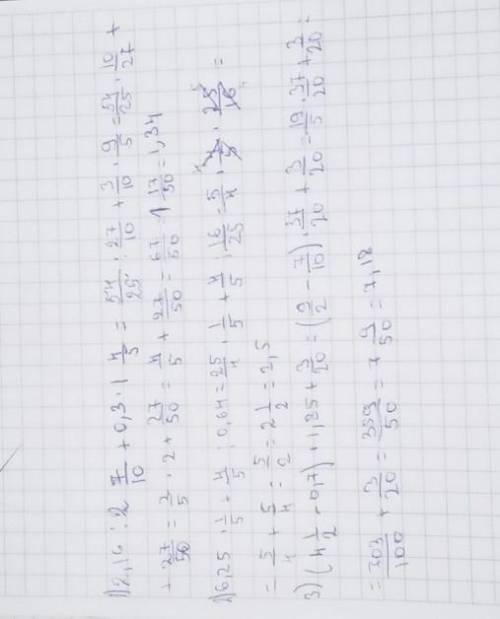 1) 2,16 : 2 7/10 + 0,3 · 1 4/5 = 54/25 : 27/10 + 3/10 · 9/5 = 54/25 · 10/27 +
+ 27/50 = 2/5 · 2 + 27/50 = 4/5 + 27/50 = 67/50 = 1 17/50 = 1,34
2) 6,25 · 1/5 + 4/5 : 0,64 = 25/4 · 1/5 + 4/5 : 16/25 = 5/4 + 4/5 · 25/16 =
= 5/4 + 5/4 = 5/2 = 2 1/2 = 2,5
3) (4 1/2 - 0,7) · 1,85 + 3/20 = (9/2 - 7/10) · 37/20 + 3/20 = 19/5 · 37/20 + 3/20 =
= 703/100 + 3/20 = 359/50 = 7 9/50 = 7,18